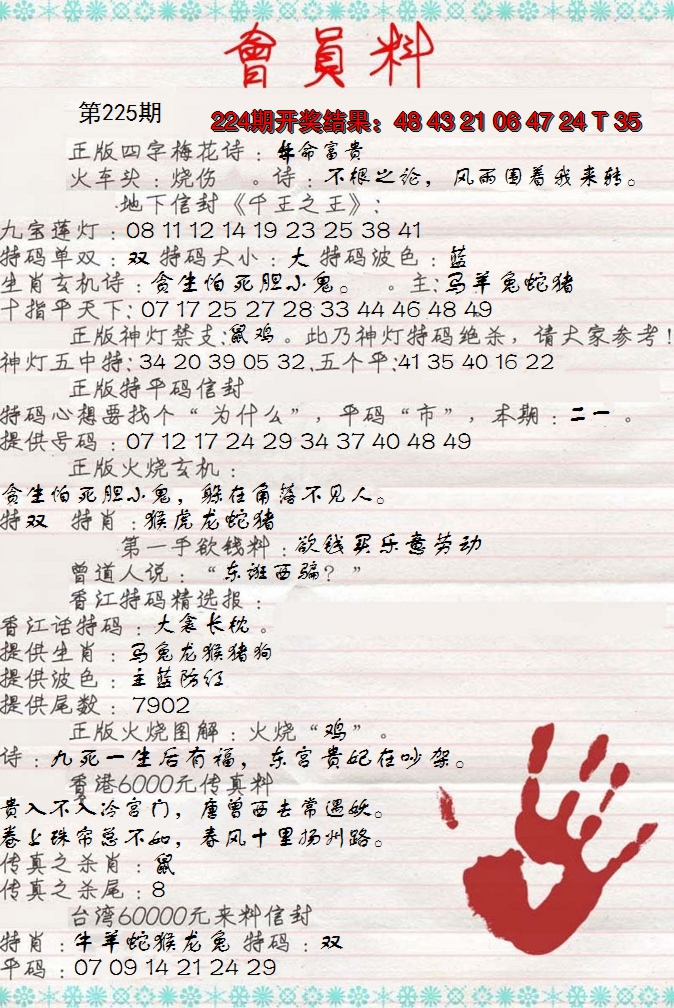 會員料
第225期
224期开奖结果：48 43 21 06 47 24 T 35
正版四字梅花诗：牛命富贵
火车头：烧伤 。诗：不根之论，风雨围着我来转。
地下信封《千王之王》：
九宝莲灯：08 11 12 14 19 23 25 38 41
特码单双：双 特码大小：大 特码波色：蓝
生肖玄机诗：贪生怕死胆小鬼。 。主：马羊兔蛇猪
十指平天下：07 17 25 27 28 33 44 46 48 49
正版神灯禁支：鼠鸡。此乃神灯特码绝杀，请大家参考！
神灯五中特：34 20 39 05 32.五个平：41 35 40 16 22
正版特平码信封
特码心想要找个“为什么”，平码“市”，本期：二一。
提供号码：07 12 17 24 29 34 37 40 48 49
正版火烧玄机：
贪生怕死胆小鬼，躲在角落不见人。
特双 特肖：猴虎龙蛇猪
第一手欲钱料：欲钱买乐意劳动
曾道人说：“东诳西骗？”
香江特码精选报：
香江话特码：大衾长枕。
提供生肖：马兔龙猴猪狗
提供波色：主蓝防红
提供尾数：7902
正版火烧图解：火烧“鸡”。
诗：九死一生后有福，东宫贵妃在吵架。
香港6000元传真料
贵人不入冷宫门，唐曾西去常遇妖。
卷上珠帘总不如，春风十里扬州路。
传真之杀肖：鼠
传真之杀尾：8
台湾60000元来料信封
特肖：牛羊蛇猴龙兔 特码：双
平码：07 09 14 21 24 29